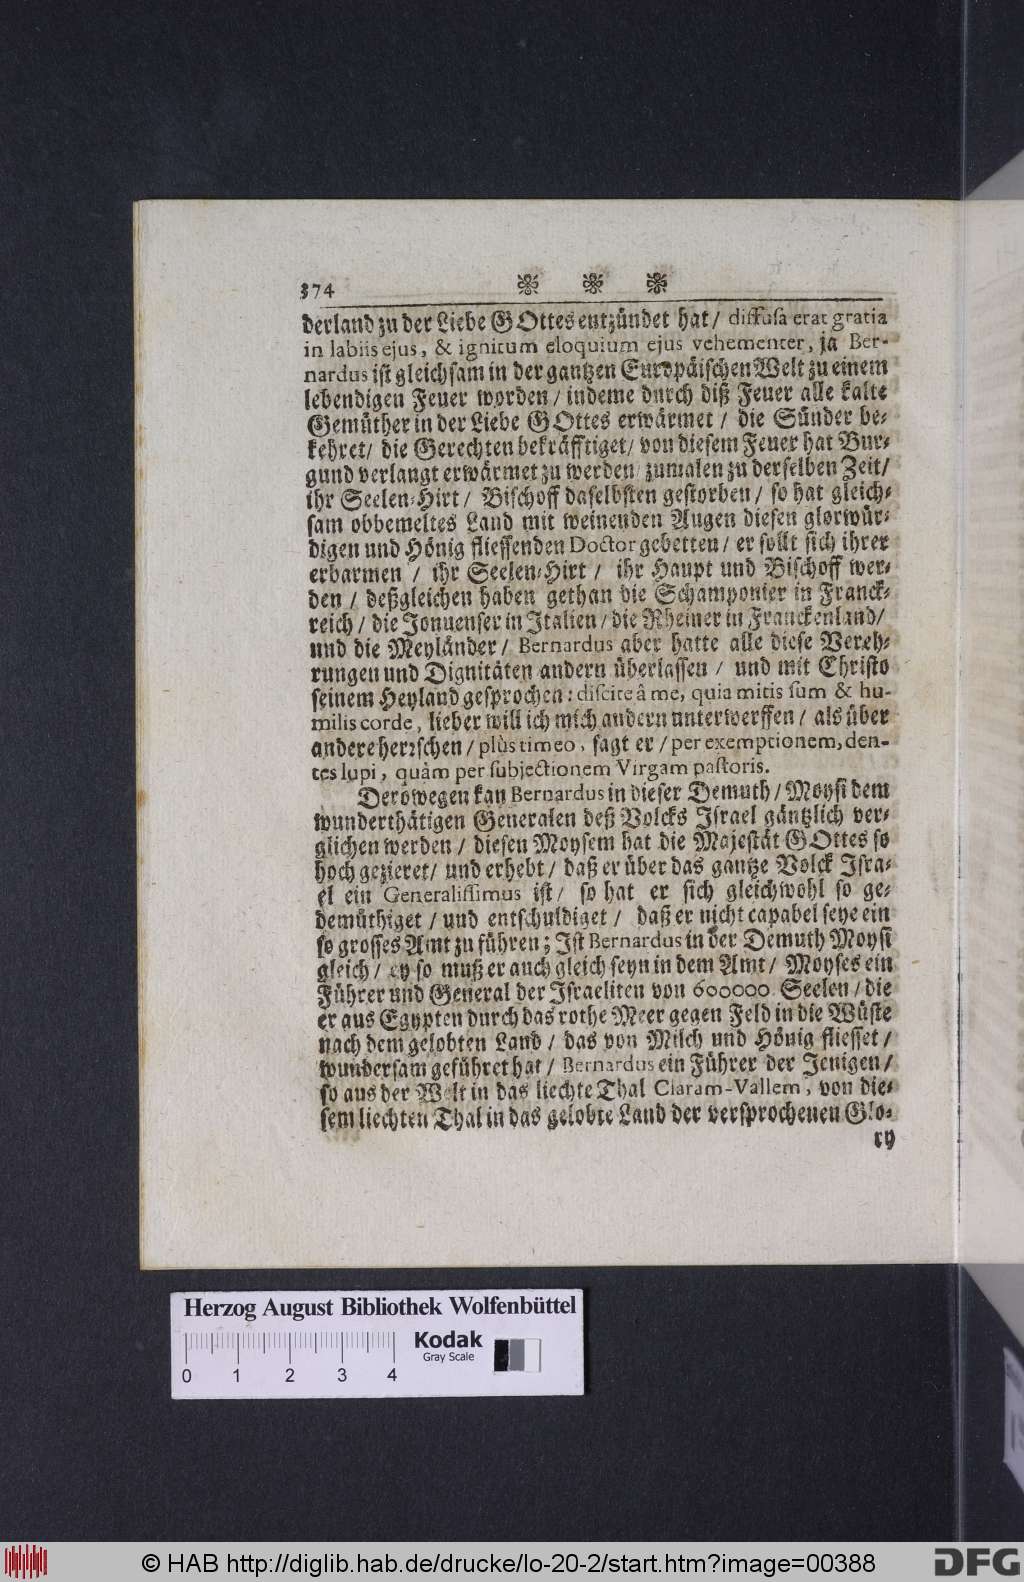 374
derland zu der Liebe GOttes entzündet hat/ diffusa erat gratia
in labiis ejus, & ignitum eloquium ejus vehementer, ja Ber-
nardus ist gleichsam in der gantzen Europäischen Welt zu einem
lebendigen Feuer worden/ indeme durch diß Feuer alle kalte
Gemüther in der Liebe GOttes erwärmet/ die Sünder be-
kehret/ die Gerechten bekräfftiget/ von diesem Feuer hat Bur-
gund verlangt erwärmet zu werden/ zumalen zu derselben Zeit/
ihr Seelen-Hirt/ Bischoff daselbsten gestorben/ so hat gleich-
sam obbemeltes Land mit weinenden Augen diesen glorwür-
digen und Hönig fliessenden Doctor gebetten/ er sollt sich ihrer
erbarmen/ ihr Seelen-Hirt/ ihr Haupt und Bischoff wer-
den/ deßgleichen haben gethan die Schamponier in Franck-
reich/ die Jonuenser in Italien/ die Rheiner in Franckenland/
und die Meyländer/ Bernardus aber hatte alle diese Vereh-
rungen und Dignitäten andern überlassen/ und mit Christo
seinem Heyland gesprochen: discite â me, quia mitis sum & hu-
milis corde, lieber will ich mich andern unterwerffen/ als über
andere herrschen/ plùs timeo, sagt er/ per exemptionem, den-
tes lupi, quàm per subjectionem Virgam pastoris.
Derowegen kan Bernardus in dieser Demuth/ Moysi dem
wunderthätigen Generalen deß Volcks Israel gäntzlich ver-
glichen werden/ diesen Moysem hat die Majestät GOttes so
hoch gezieret/ und erhebt/ daß er über das gantze Volck Isra-
el ein Generalissimus ist/ so hat er sich gleichwohl so ge-
demüthiget/ und entschuldiget/ daß er nicht capabel seye ein
so grosses Amt zu führen; Ist Bernardus in der Demuth Moysi
gleich/ ey so muß er auch gleich seyn in dem Amt/ Moyses ein
Führer und General der Israeliten von 600000. Seelen/ die
er aus Egypten durch das rothe Meer gegen Feld in die Wüste
nach dem gelobten Land/ das von Milch und Hönig fliesset/
wundersam geführet hat/ Bernardus ein Führer der Jenigen/
so aus der Welt in das liechte Thal Claram-Vallem, von die-
sem liechten Thal in das gelobte Land der versprochenen Glo-
ry
Herzog August Bibliothek Wolfenbüttel
Kodak
Gray Scale
0 1 2 3 4
© HAB http://diglib.hab.de/drucke/lo-20-2/start.htm?image=00388
DFG